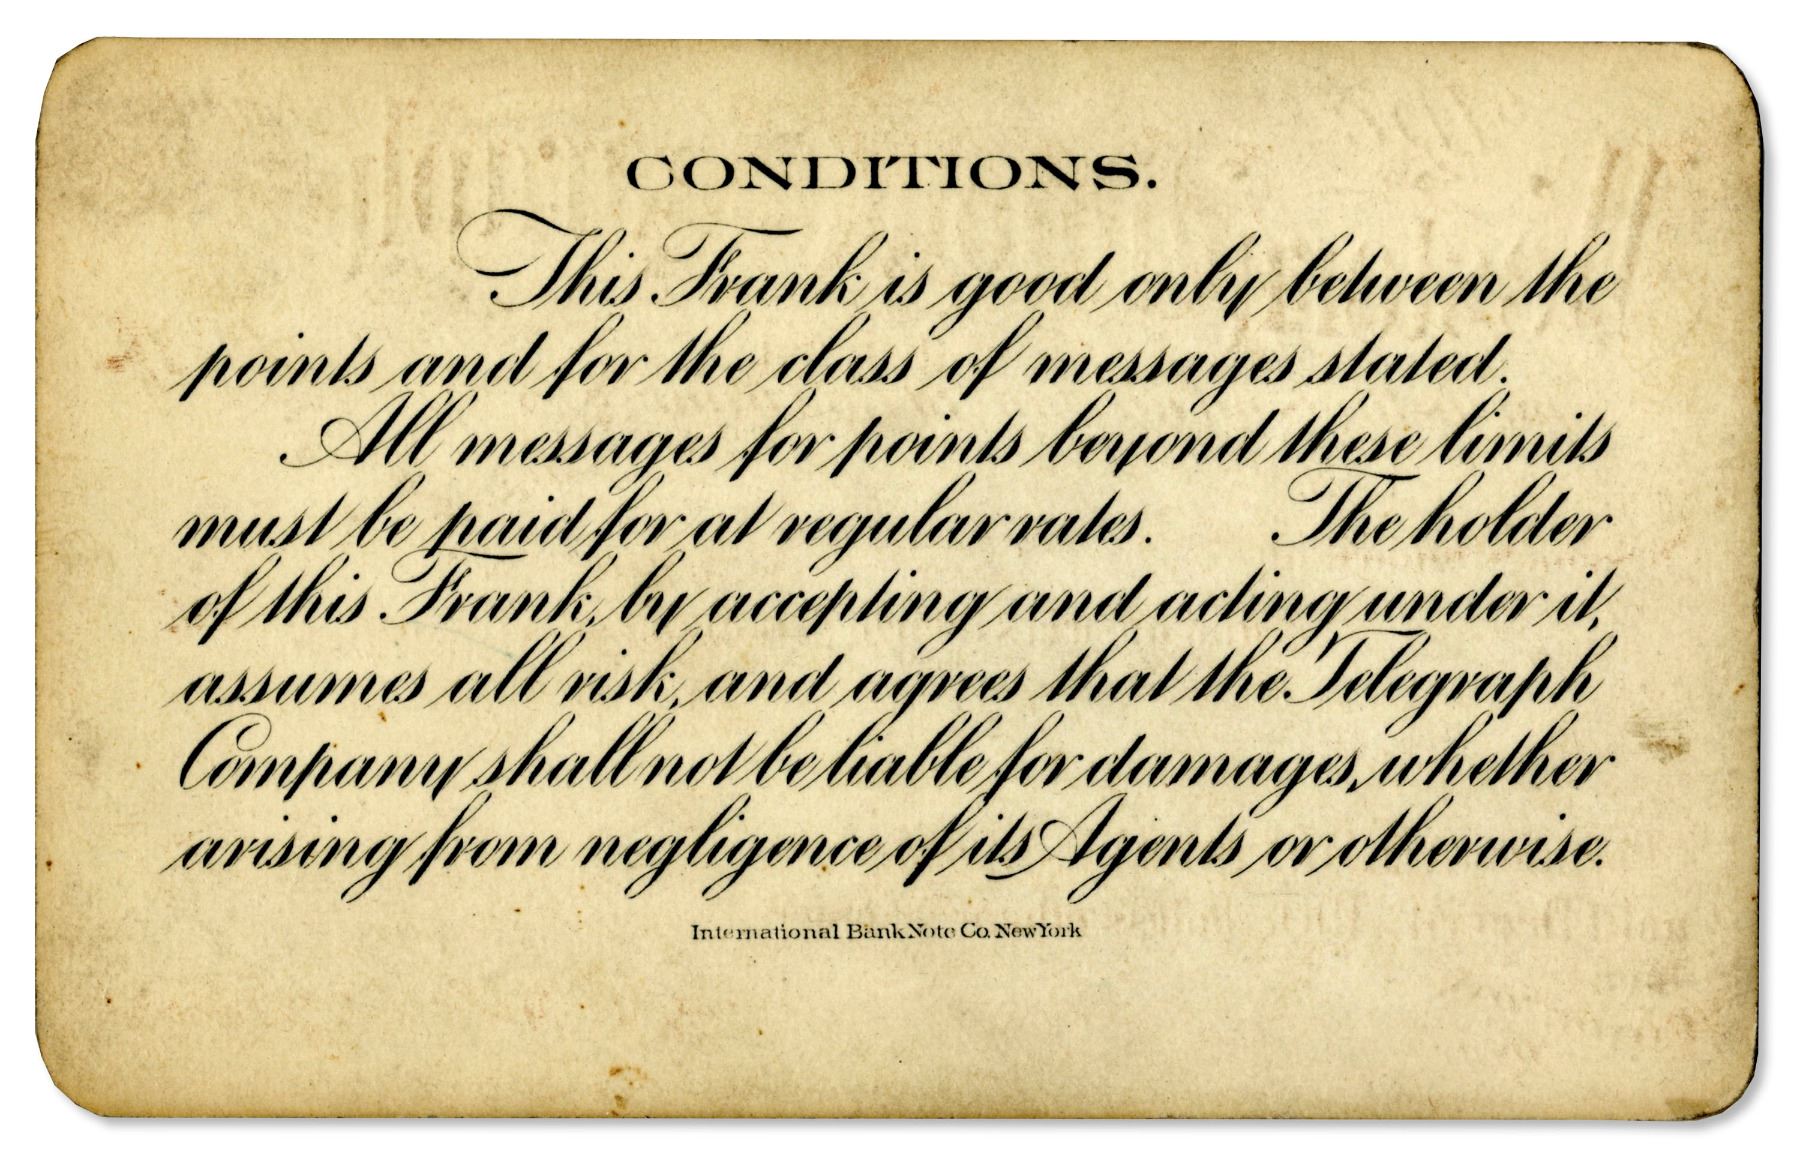 CONDITIONS.
This Frank is good only between the
points and for the class of messages stated.
All messages for points beyond these limits
must be paid for at regular rates. The holder
of this Frank, by accepting and acting under it,
assumes all risk, and agrees that the Telegraph
Company shall not be liable for damages, whether
arising from negligence of its Agents or otherwise.
International Bank Note Co. New York